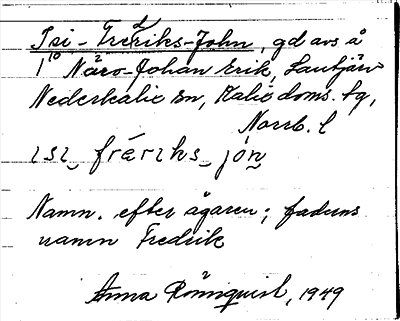 Isi-Fredriks-John, gd avs å
1¹⁰ Näro-Johan Erik, Lantjärv
Nederkalix sn, Kalix doms. tg,
Norrb. l
ɪsɪ‿ fráriks‿ jon
Namn. efter ägaren; faderns
namn Fredrik
Anna Rönnquist, 1949